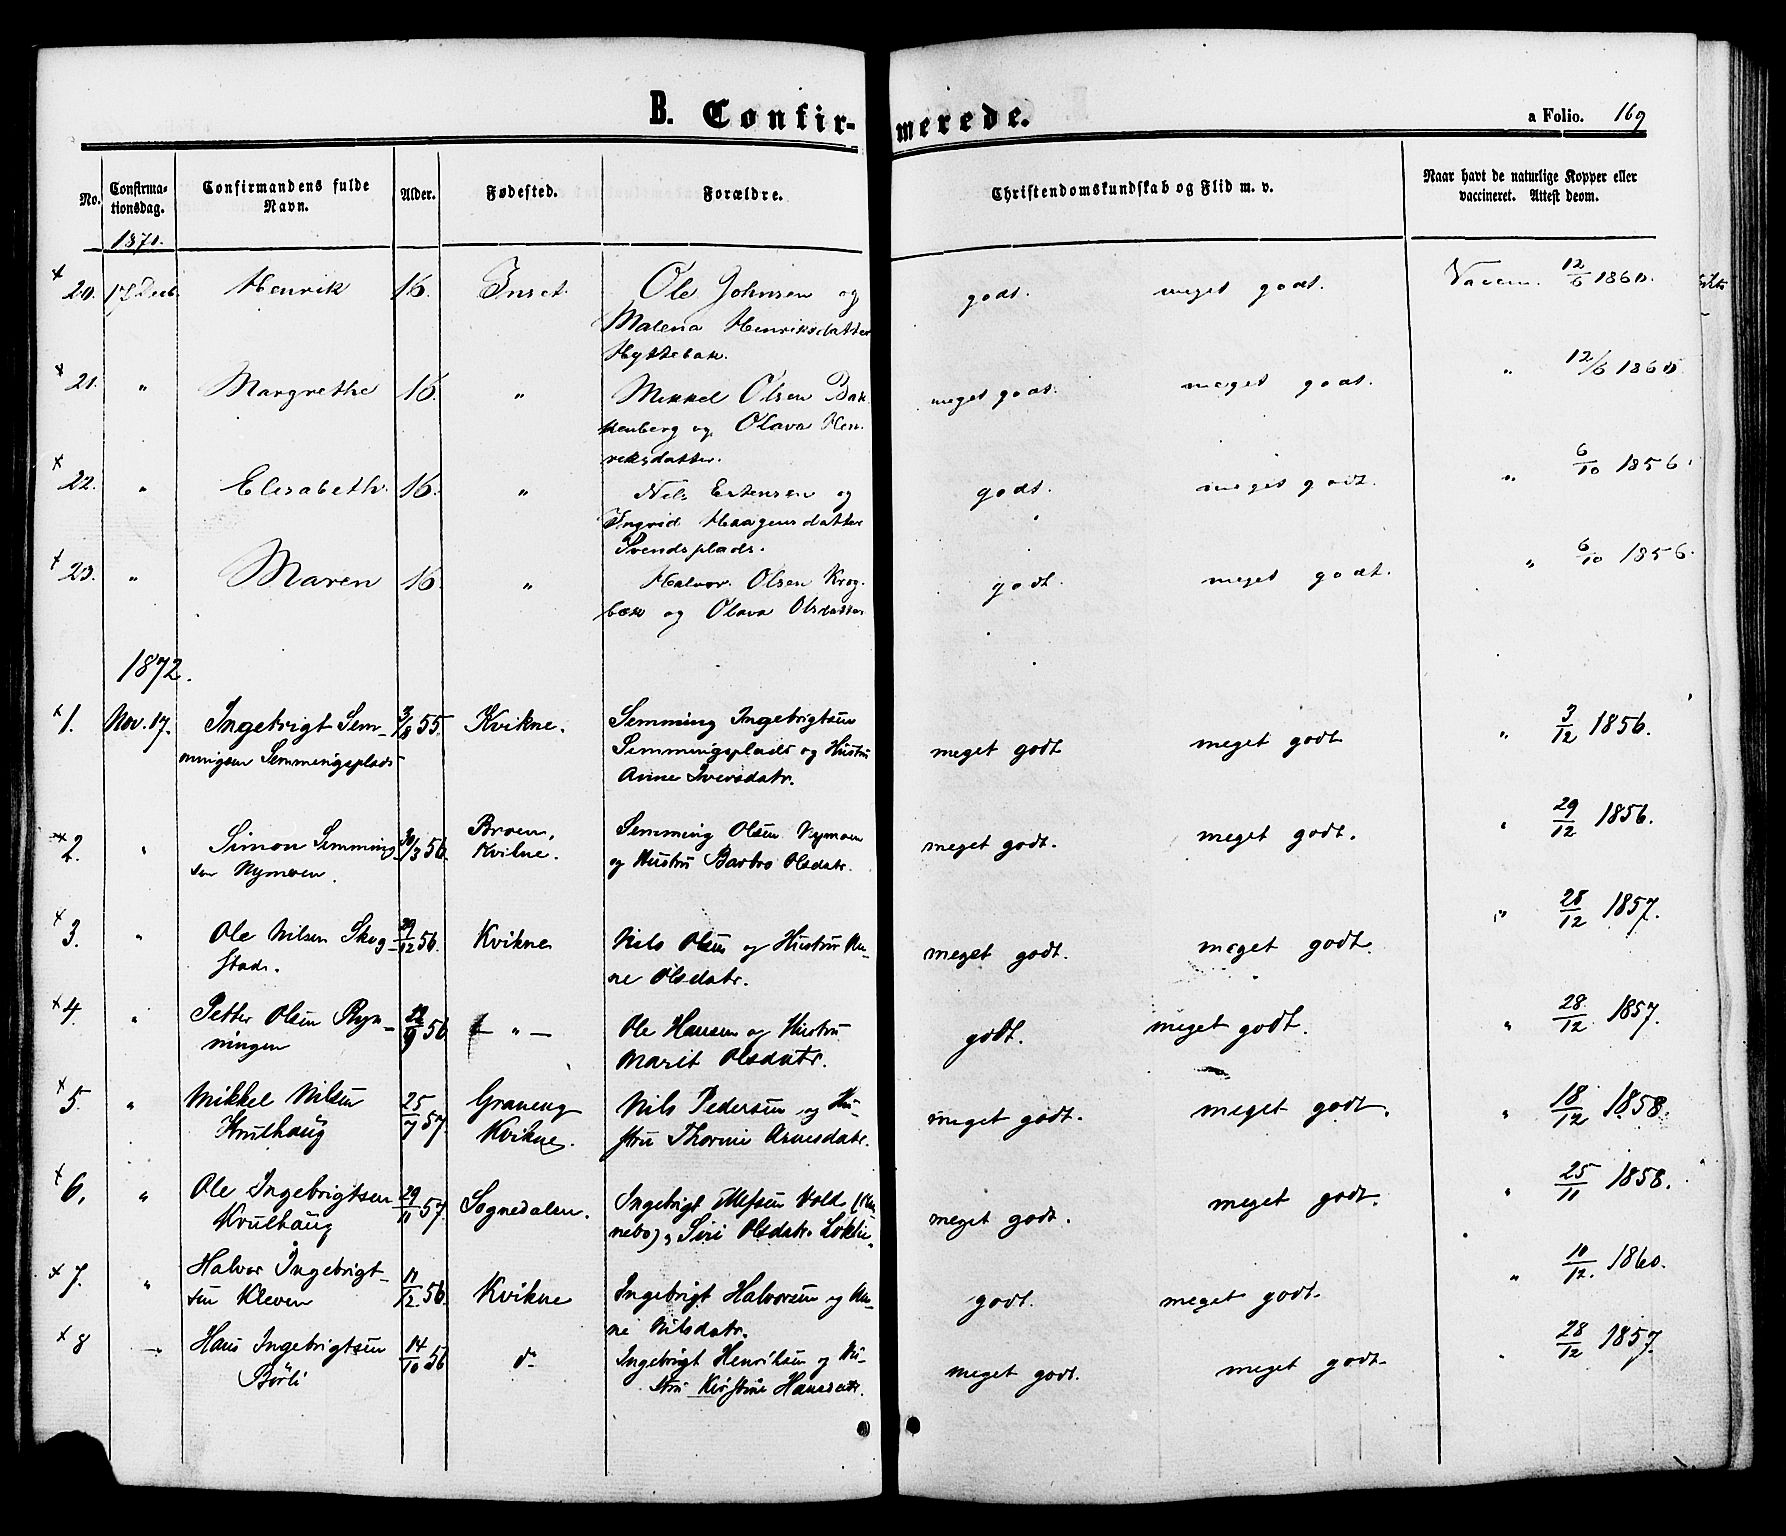 B. Confir-merede.
a Folio. 169
No. Confirmationsdag. Confirmandens fulde Navn. Alder. Fødested. Forældre. Christendomskundskab og Flid m. v. Naar havt de naturlige Kopper eller vaccineret. Attest deom.
1871.
+ 20. 17 Decb. Henrik 16. Inset. Ole Johnsen og godt. meget godt. Vaccin. 12/6 1860.
Malena Henriksdatter
Hyttebak.
+ 21. " Margrethe 16. " Mikkel Olsen Bak meget godt. meget godt. " 12/6 1860
kenberg og Olava Hen
riksdatter.
+ 22. " Elisabeth. 16. " Nils Estensen og godt. meget godt. " 6/10 1856.
Ingrid Haagensdatter
Svendsplads.
+ 23. " Maren 16. " Halvor Olsen Krog- godt. meget godt. " 6/10 1856.
bæk og Olava Olsdatter
1872.
+ 1. Nov. 17. Ingebrigt Sem- 55. Kvikne. Semming Ingebrigtsen meget godt meget godt " 3/12 1856.
mingsen Semmingsplads Semmingsplads og Hustru
Anne Iversdatr.
+ 2. " Simon Semming 30/3 56. Broen, Semming Olsen Nymoen meget godt. meget godt. " 29/12 1856.
sen Nymoen. Kvikne. og Hustru Barbro Olsdatr.
+ 3. " Ole Nilsen Skog- 29/12 56. Kvikne Nils Olsen og Hustru An- meget godt. meget godt. " 28/12 1857.
stad. ne Olsdatr.
+ 4. " Petter Olsen Ryn- 56 - " - Ole Hansen og Hustru godt. meget godt. " 28/12 1857.
ningen Marit Olsdatr.
+ 5. " Mikkel Nilsen 25/7 57. Graneng Nils Pedersen og Hu- meget godt. meget godt. " 18/12 1858.
Krulhaug Kvikne. stru Thorine Arnesdatr.
+ 6. " Ole Ingebrigtsen 29/11 57. Sognedalen. Ingebrigt Vold, meget godt. meget godt. " 25/11 1858.
Krulhaug Siri Olsdatr.
+ 7. " Halvor Ingebrigt- 11/12 56. Kvikne Ingebrigt Halvorsen og An- godt. meget godt. " 10/12. 1860.
sen Kleven ne Nilsdatr.
+ 8 - Hans Ingebrigtsen 14/10 56 do Ingebrigt Henriksen og Hu- meget godt. meget godt. " 28/12 1857.
Børli stru Kirstine Hansdatr.